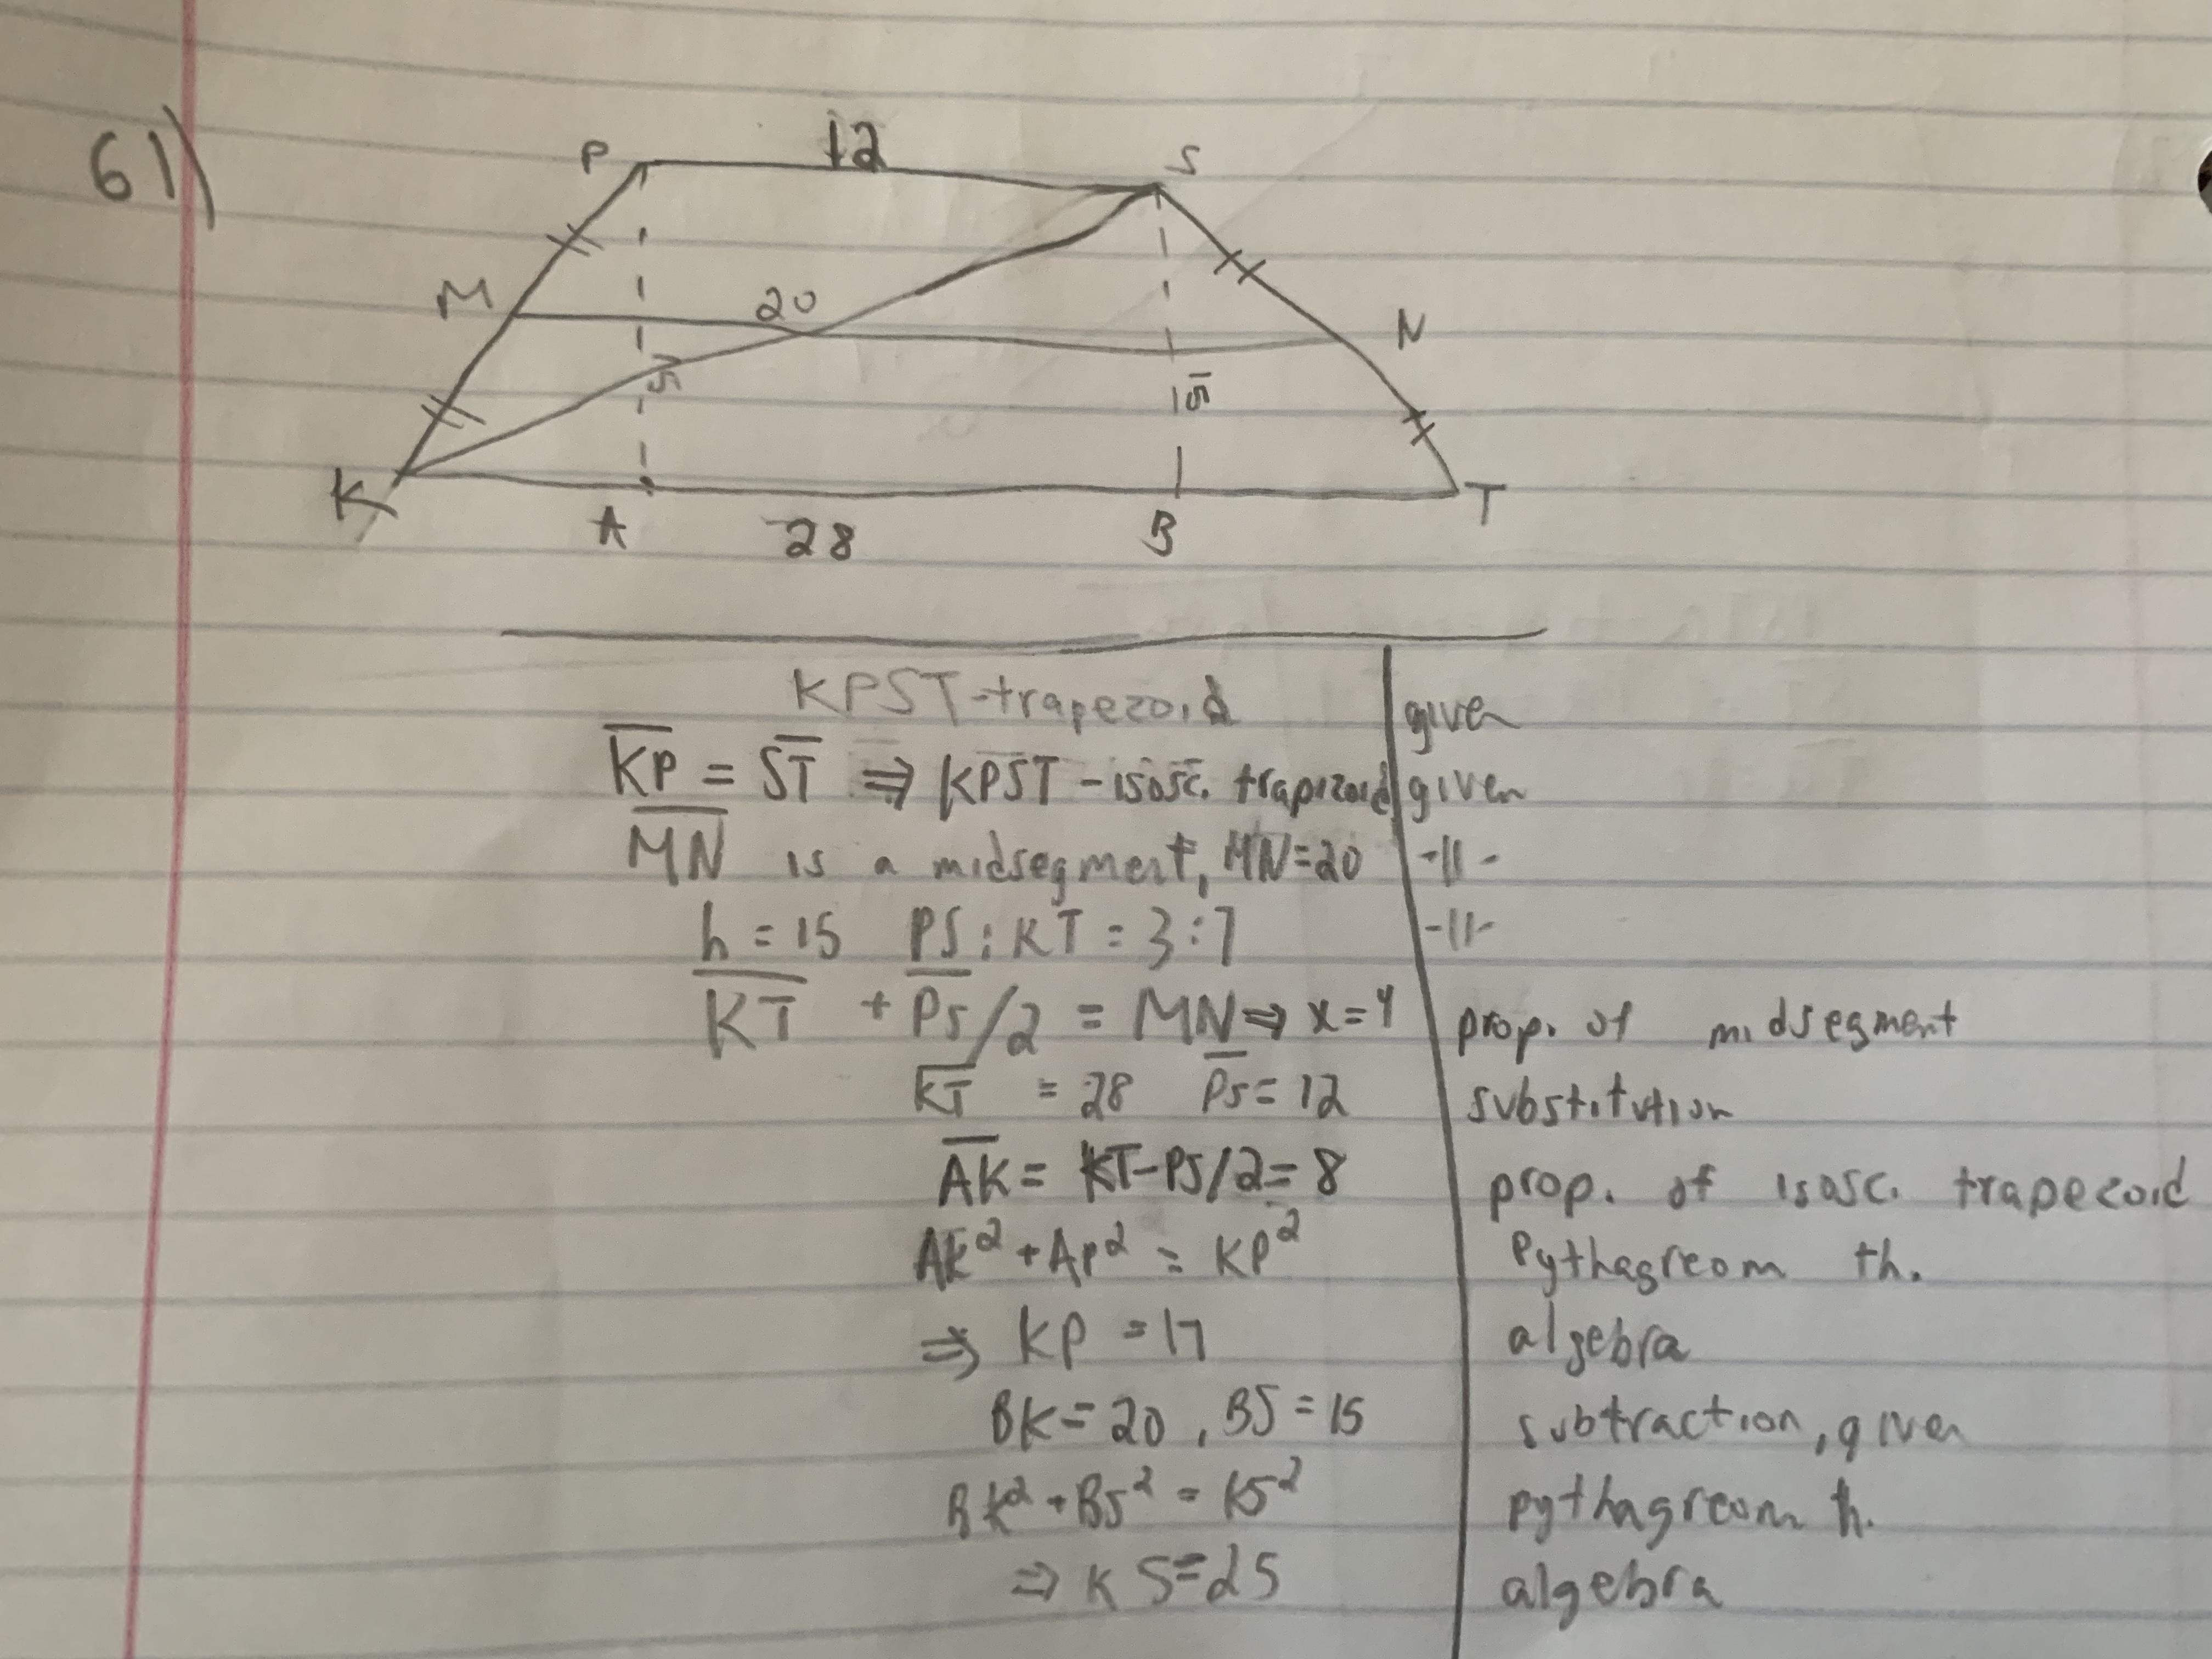 61)
P 12 S
M 20 N
15
K A 28 B T
KPST-trapezoid given
KP = ST ⇒ KPST - isosc. trapizoid given
MN is a midsegment, MN=20 -||-
h = 15 PS : KT = 3:7 -||-
KT + PS/2 = MN ⇒ x=4 prop. of midsegment
KT = 28 PS = 12 substitution
AK = KT-PS/2= 8 prop. of isosc. trapezoid
AK² + AP² = KP² Pythagreom th.
⇒ KP = 17 algebra
BK = 20, BS = 15 subtraction, given
BK² + BS² = KS² pythagreom th.
⇒ KS = 25 algebra